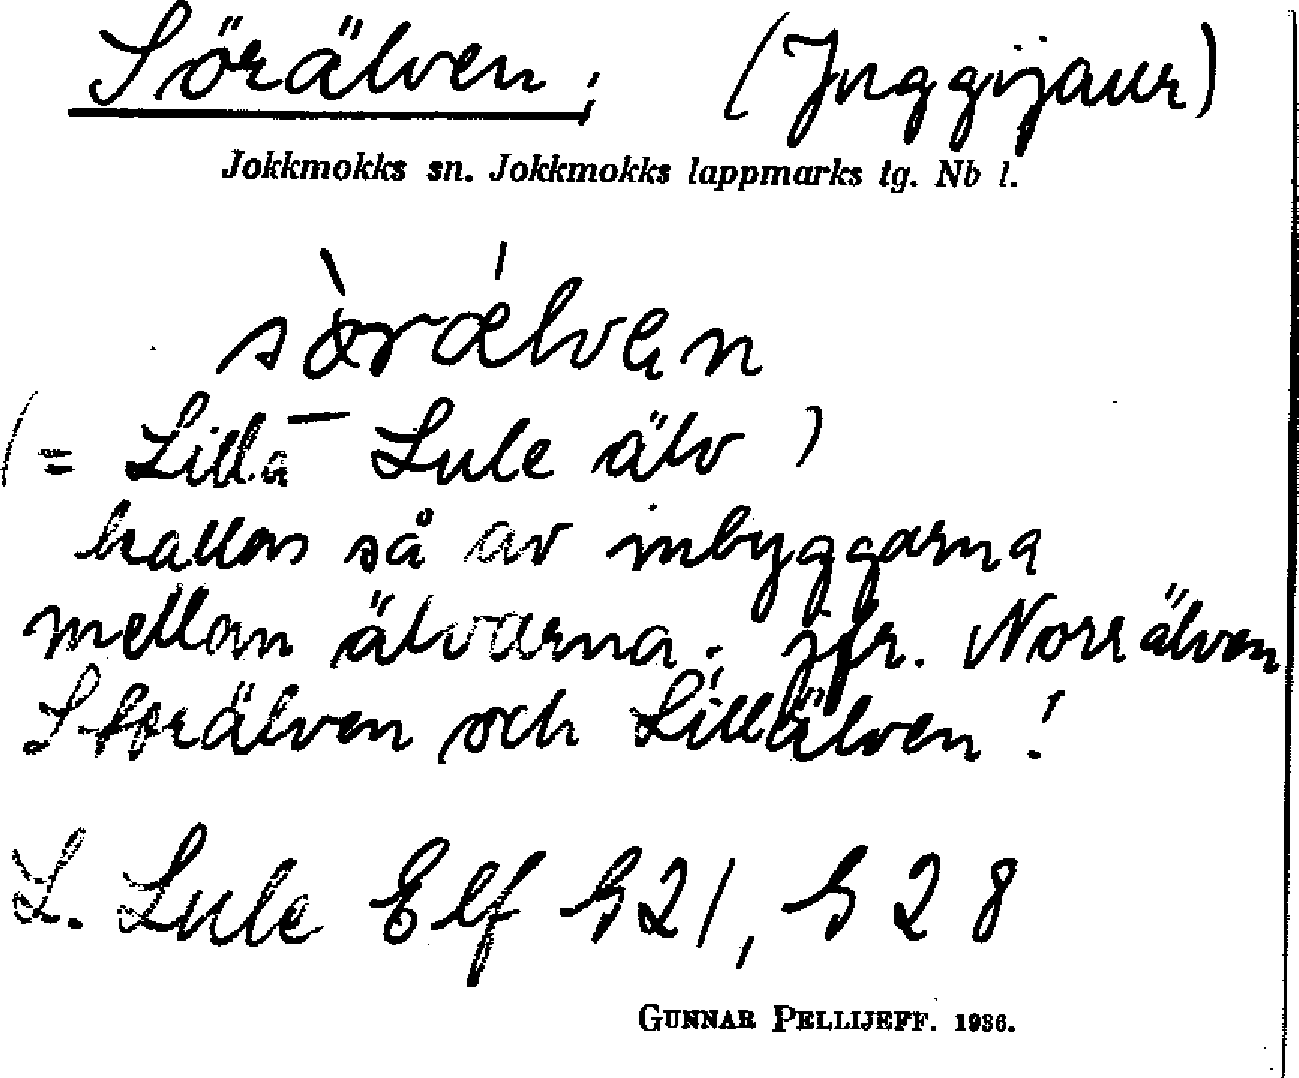 Sörälven; (Jnggijaur)
Jokkmokks sn. Jokkmokks lappmarks tg. Nb l.
sö̀rǽlven
(= Lilla Lule älv)
kallas så av inbyggarna
mellan älvarna. jfr. Norrälven
Storälven och Lillälven!
L. Lule Elf h21, h28
GUNNAR PELLIJEFF. 1936.